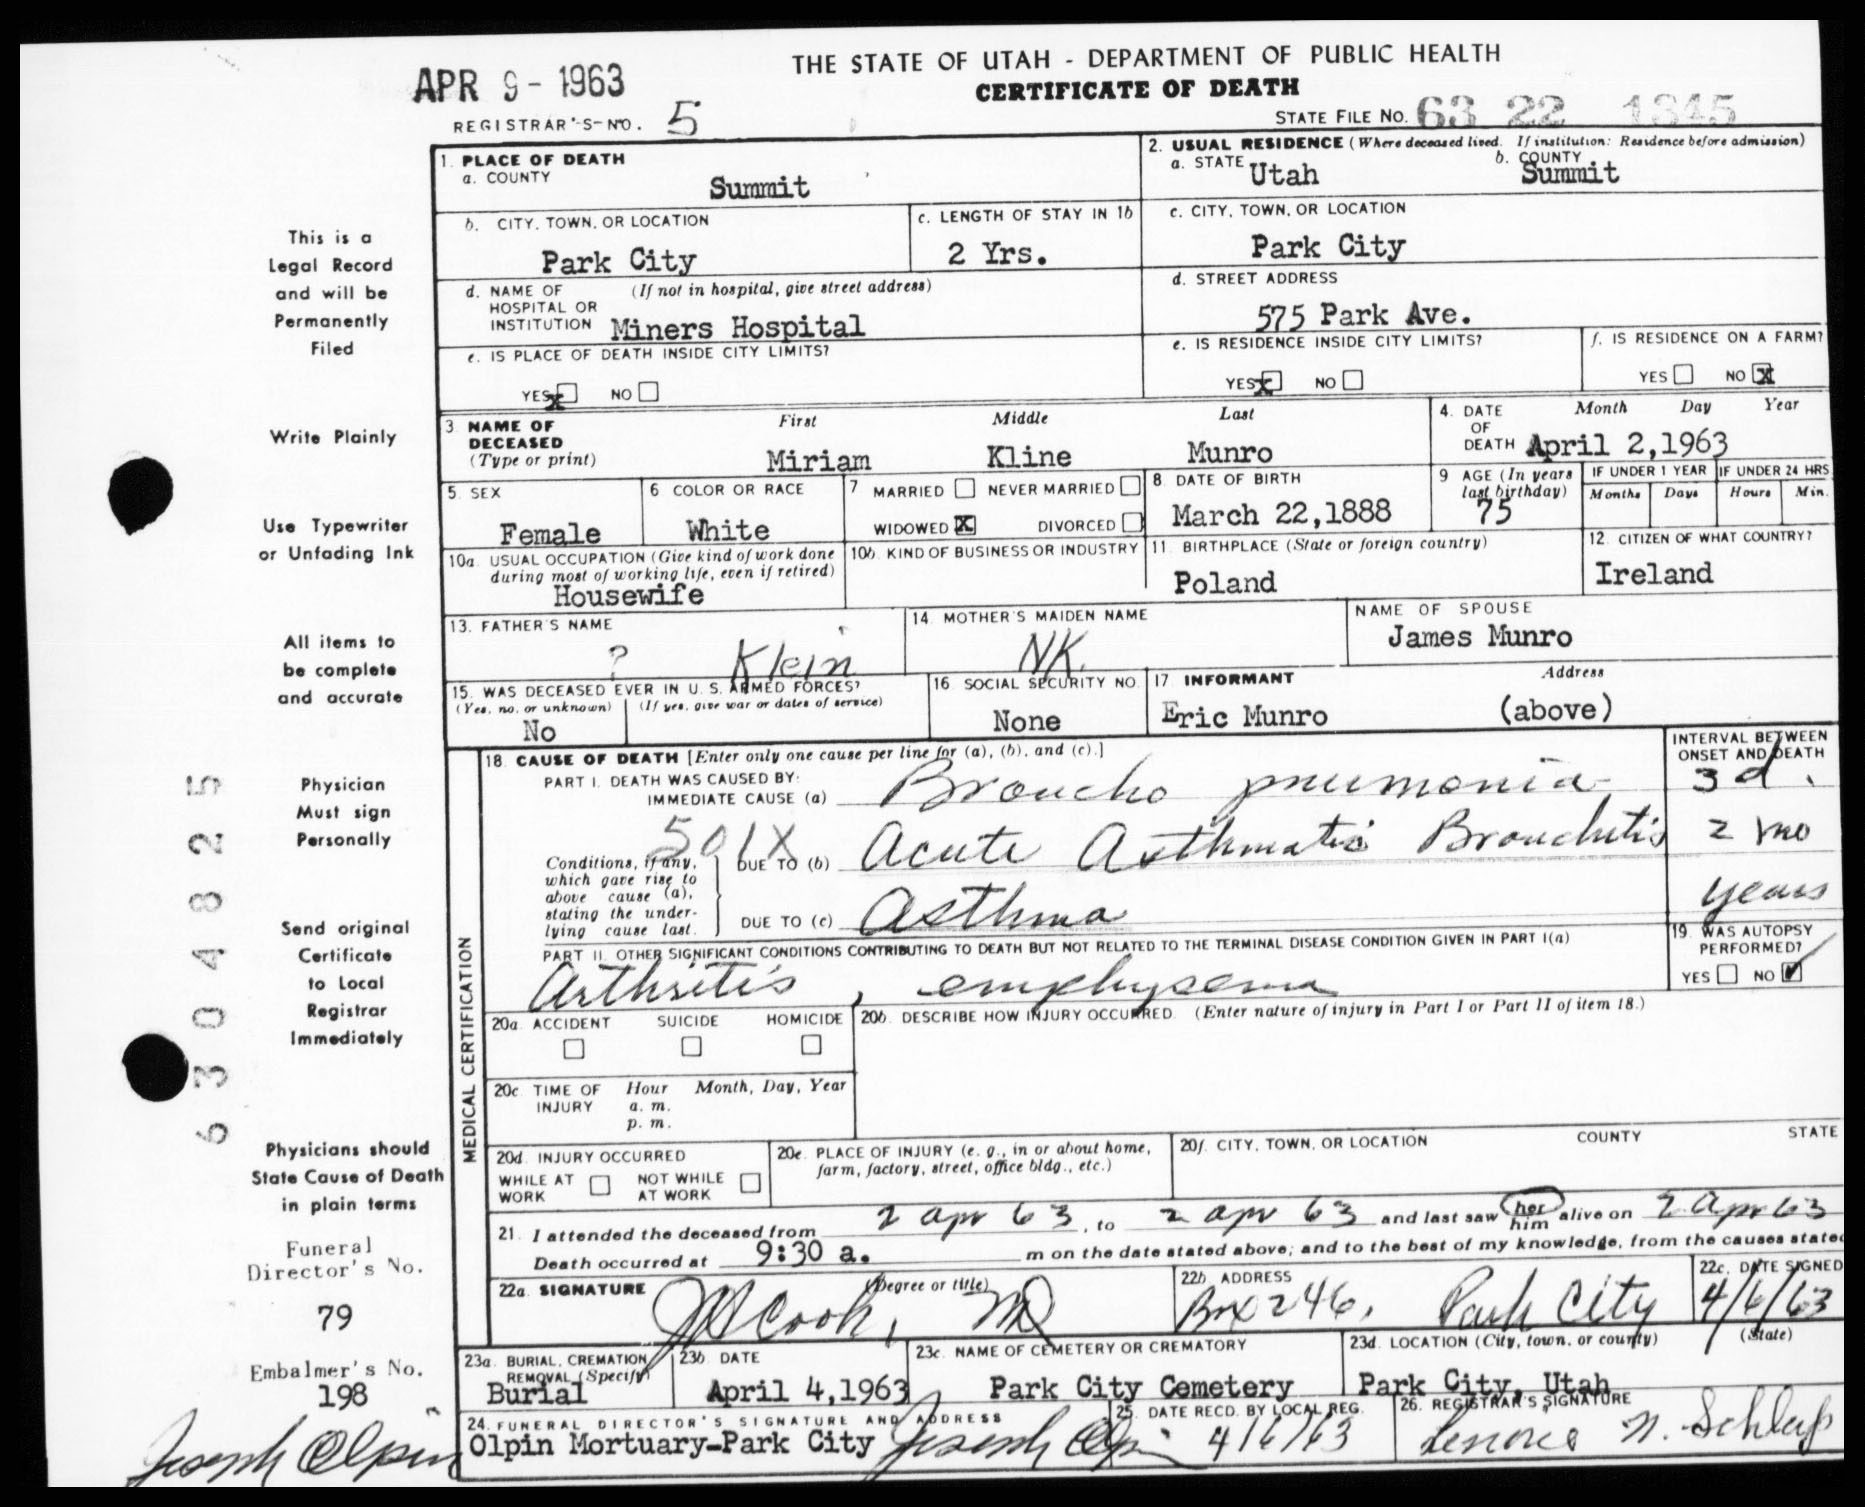 THE STATE OF UTAH - DEPARTMENT OF PUBLIC HEALTH
CERTIFICATE OF DEATH
APR 9 - 1963
REGISTRAR'S NO. 5
STATE FILE NO. 63 22 1345
1. PLACE OF DEATH
a. COUNTY
Summit
2. USUAL RESIDENCE (Where deceased lived. If institution: Residence before admission)
a. STATE Utah b. COUNTY Summit
b. CITY, TOWN, OR LOCATION
Park City
c. LENGTH OF STAY IN 1b
2 Yrs.
c. CITY, TOWN, OR LOCATION
Park City
d. NAME OF HOSPITAL OR INSTITUTION (If not in hospital, give street address)
Miners Hospital
d. STREET ADDRESS
575 Park Ave.
e. IS PLACE OF DEATH INSIDE CITY LIMITS?
YES x NO
e. IS RESIDENCE INSIDE CITY LIMITS?
YES x NO
f. IS RESIDENCE ON A FARM?
YES NO X
3. NAME OF DECEASED (Type or print)
First Middle Last
Miriam Kline Munro
4. DATE OF DEATH Month Day Year
April 2,1963
5. SEX
Female
6. COLOR OR RACE
White
7. MARRIED NEVER MARRIED
WIDOWED X DIVORCED
8. DATE OF BIRTH
March 22,1888
9. AGE (In years last birthday)
75
IF UNDER 1 YEAR
Months Days
IF UNDER 24 HRS
Hours Min.
10a. USUAL OCCUPATION (Give kind of work done during most of working life, even if retired)
Housewife
10b. KIND OF BUSINESS OR INDUSTRY
11. BIRTHPLACE (State or foreign country)
Poland
12. CITIZEN OF WHAT COUNTRY?
Ireland
13. FATHER'S NAME
? Klein
14. MOTHER'S MAIDEN NAME
NK.
NAME OF SPOUSE
James Munro
15. WAS DECEASED EVER IN U. S. ARMED FORCES?
(Yes, no, or unknown) (If yes, give war or dates of service)
No
16. SOCIAL SECURITY NO.
None
17. INFORMANT Address
Eric Munro (above)
MEDICAL CERTIFICATION
18. CAUSE OF DEATH [Enter only one cause per line for (a), (b), and (c).]
INTERVAL BETWEEN ONSET AND DEATH
PART I. DEATH WAS CAUSED BY:
IMMEDIATE CAUSE (a) Broncho pneumonia 3 d.
501X
Conditions, if any, which gave rise to above cause (a), stating the underlying cause last.
DUE TO (b) Acute Asthmatic Bronchitis 2 mo
DUE TO (c) Asthma years
PART II. OTHER SIGNIFICANT CONDITIONS CONTRIBUTING TO DEATH BUT NOT RELATED TO THE TERMINAL DISEASE CONDITION GIVEN IN PART I(a)
Arthritis, emphysema
19. WAS AUTOPSY PERFORMED?
YES NO ✓
20a. ACCIDENT SUICIDE HOMICIDE
20b. DESCRIBE HOW INJURY OCCURRED. (Enter nature of injury in Part I or Part II of item 18.)
20c. TIME OF INJURY Hour Month, Day, Year
a. m.
p. m.
20d. INJURY OCCURRED
WHILE AT WORK NOT WHILE AT WORK
20e. PLACE OF INJURY (e. g., in or about home, farm, factory, street, office bldg., etc.)
20f. CITY, TOWN, OR LOCATION COUNTY STATE
21. I attended the deceased from 2 apr 63, to 2 apr 63 and last saw her him alive on 2 apr 63
Death occurred at 9:30 a. m on the date stated above; and to the best of my knowledge, from the causes stated
22a. SIGNATURE (Degree or title)
Cook, MD
22b. ADDRESS
Box 246, Park City
22c. DATE SIGNED
4/6/63
23a. BURIAL, CREMATION REMOVAL (Specify)
Burial
23b. DATE
April 4,1963
23c. NAME OF CEMETERY OR CREMATORY
Park City Cemetery
23d. LOCATION (City, town, or county) (State)
Park City, Utah
24. FUNERAL DIRECTOR'S SIGNATURE AND ADDRESS
Olpin Mortuary-Park City Joseph Olpin
25. DATE RECD. BY LOCAL REG.
4/6/63
26. REGISTRAR'S SIGNATURE
This is a
Legal Record
and will be
Permanently
Filed
Write Plainly
Use Typewriter
or Unfading Ink
All items to
be complete
and accurate
Physician
Must sign
Personally
Send original
Certificate
to Local
Registrar
Immediately
Physicians should
State Cause of Death
in plain terms
Funeral
Director's No.
79
Embalmer's No.
198
Joseph Olpin
6 3 0 4 8 2 5